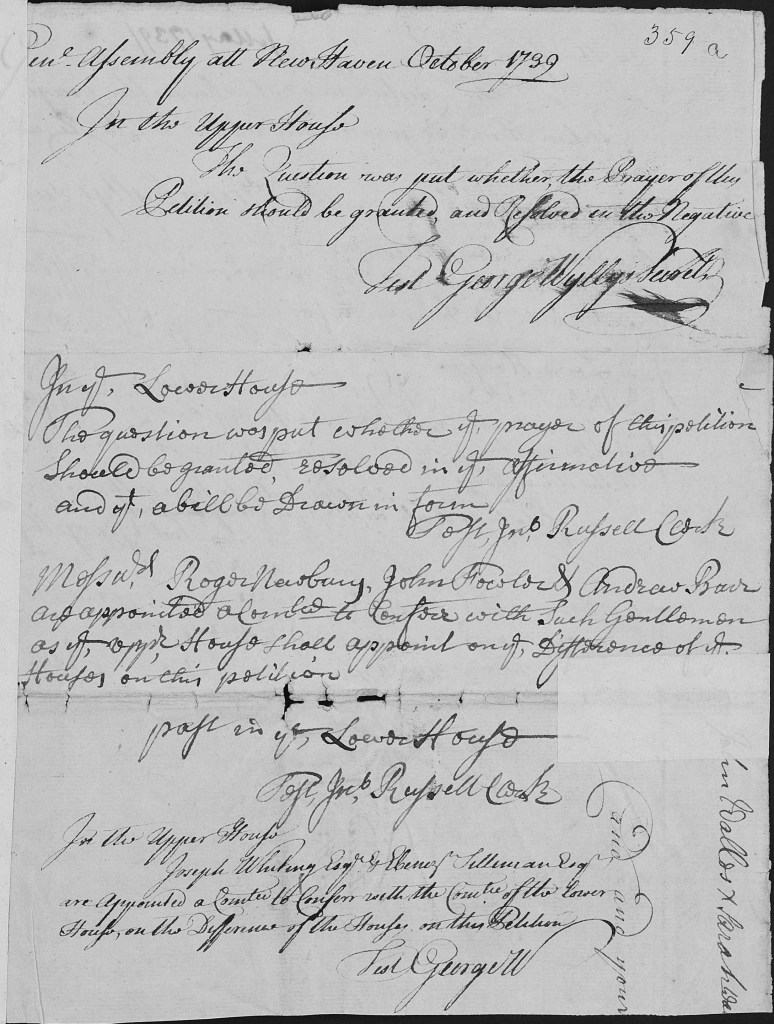 359 a
Genl. Assembly att New Haven October 1739
In the Upper House
The Question was put whether, the Prayer of this
Petition should be granted, and Resolved in the Negative
Test George Wyllys Secret.
In ye, Lower House
The question was put whether ye, prayer of this petition
Should be granted, resolved in ye, affirmative
and yt, a bill be Drawn in form
Test, Jno. Russell Clerk
Messrs. Roger Newbury, John Fowler & Andrew
are appointed a Comtee to Conferr with Such Gentlemen
as ye, uppr House shall appoint on ye, Difference of ye
Houses on this petition
past in ye, Lower House
Test, Jno. Russell Clerk
In the Upper House
Joseph Whiting Esqr. & Ebenezr Silliman Esqr
are Appointed a Comtee to Conferr with the Comtee of the Lower
House, on the Difference of the Houses on this Petition
Test George W
and your
in Walles & Sarah Wa